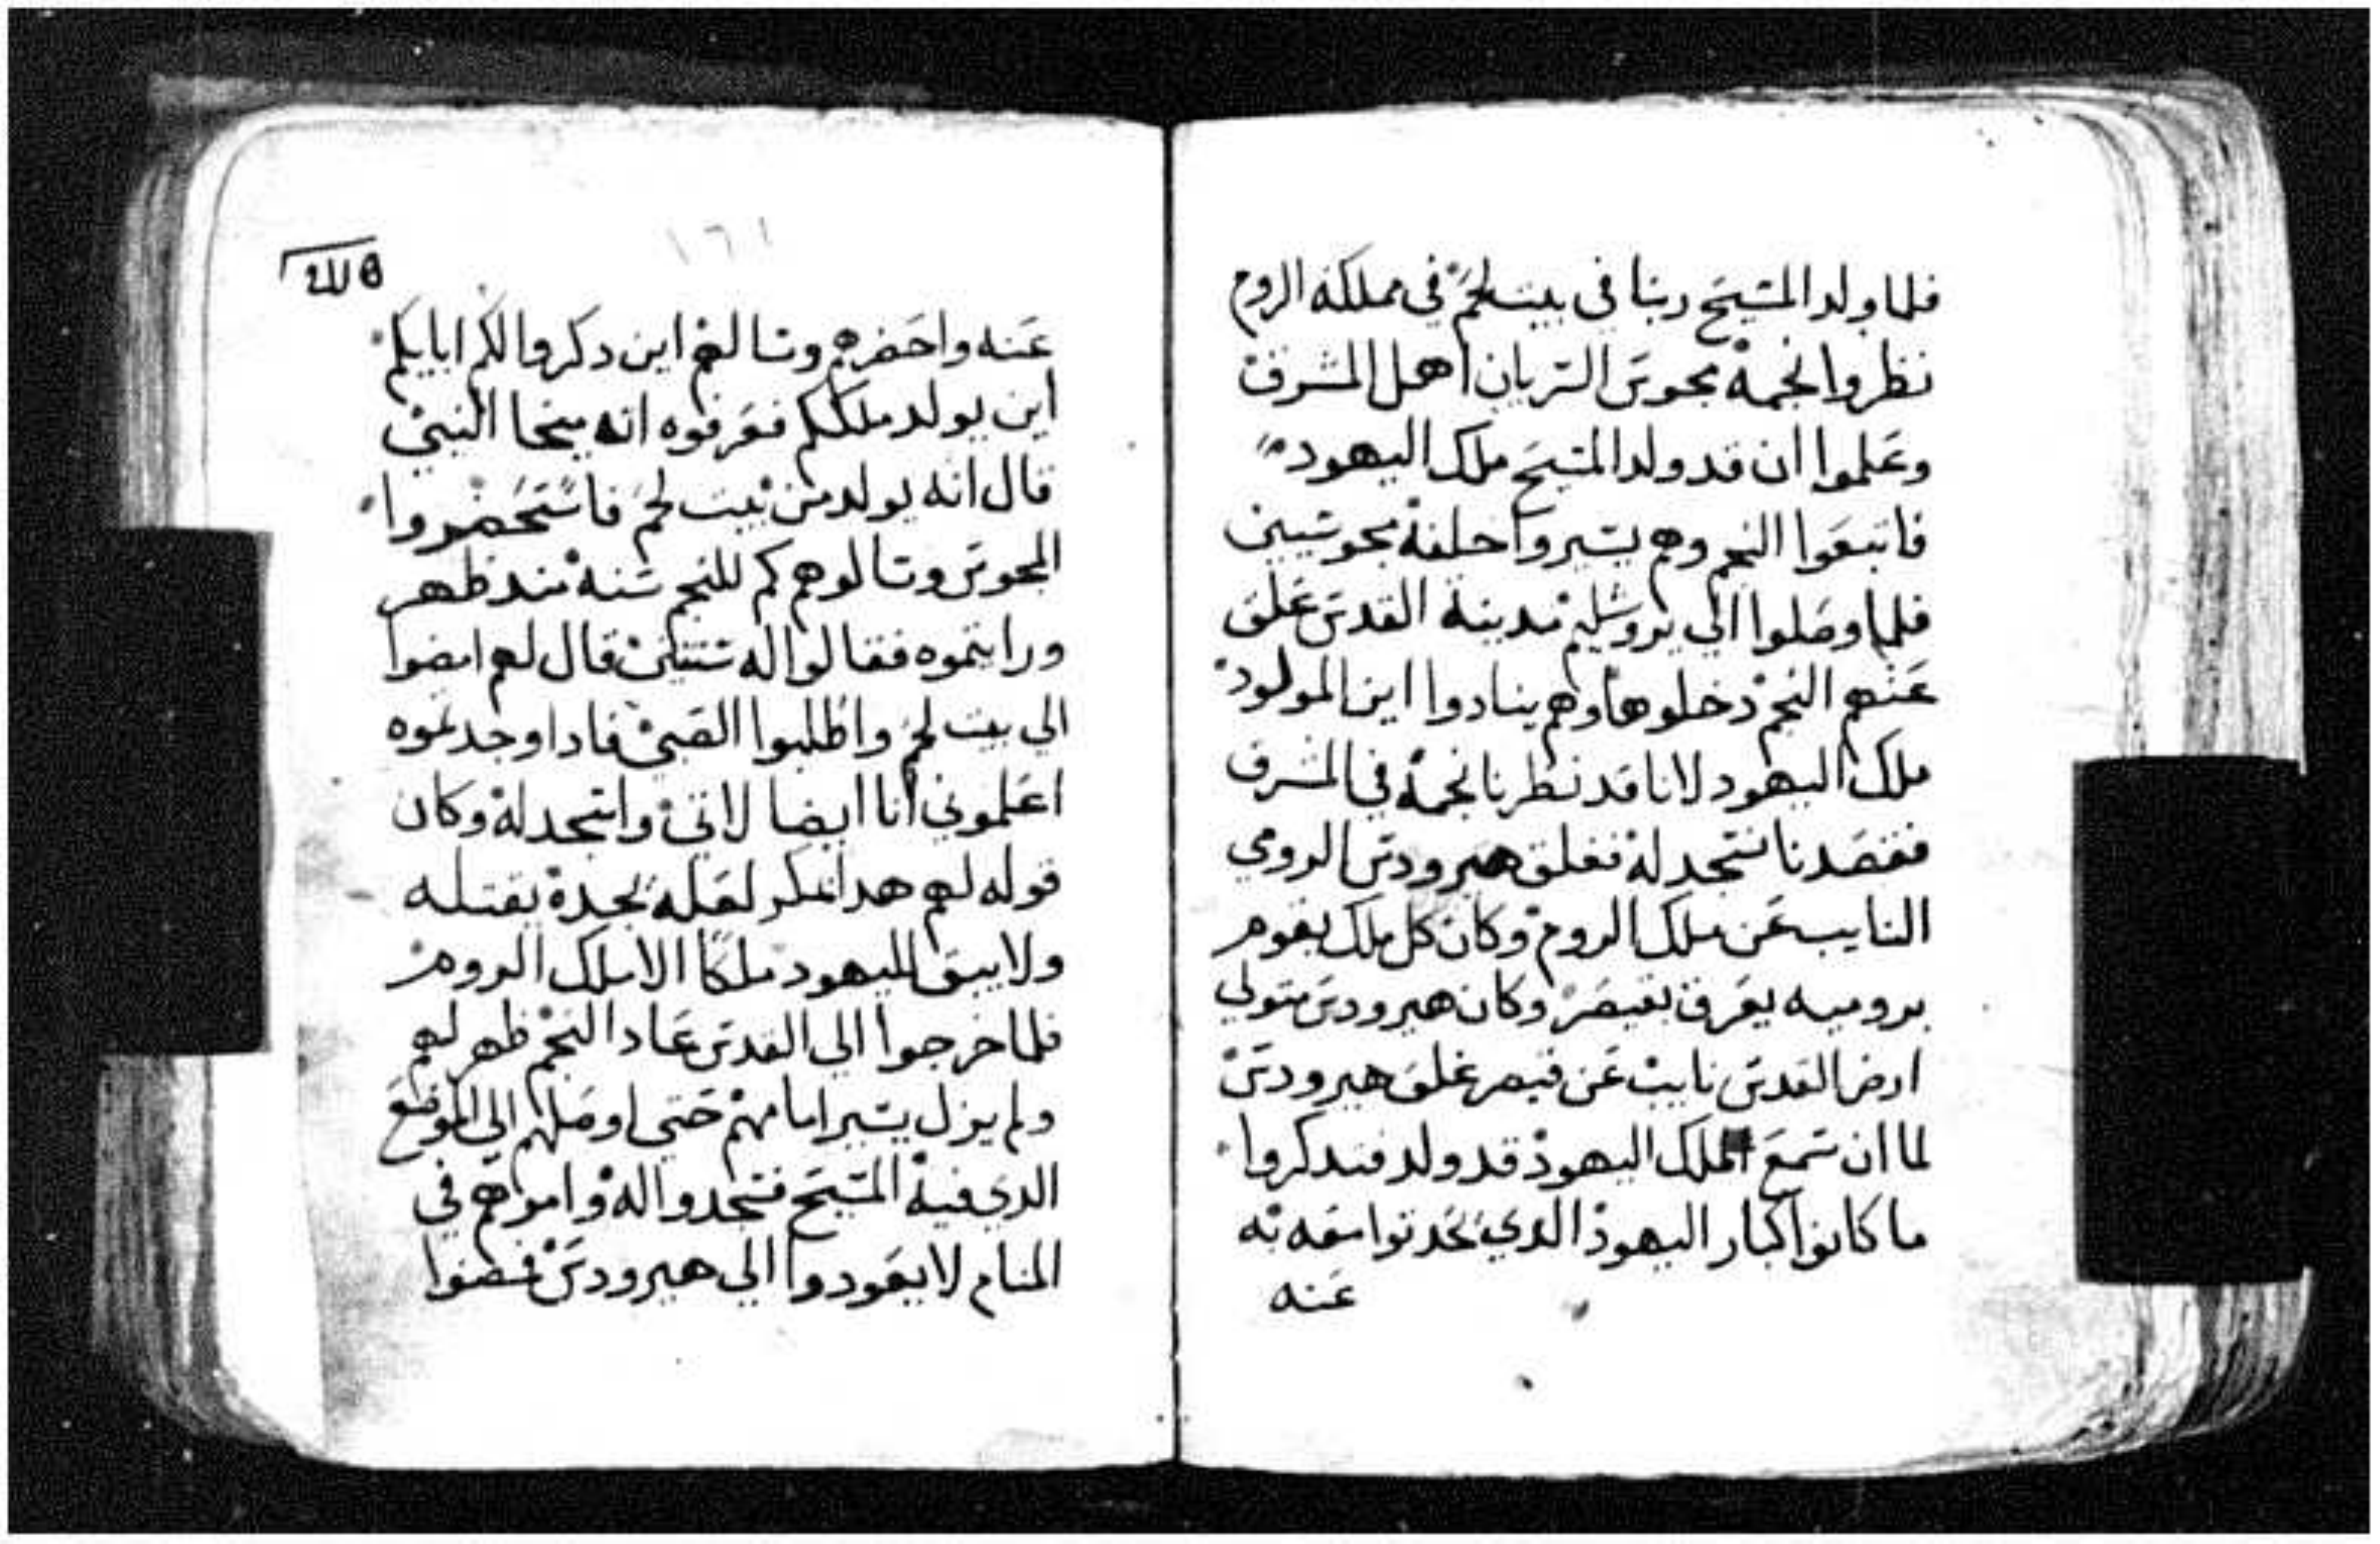 فلما ولد المسيح ربنا في بيت لحم في مملكة الروم
نظروا نجمه مجوس السريان اهل المشرق
وعلموا ان قد ولد المسيح ملك اليهود
فاتبعوا النجم وهم يسيروا خلفه مجوسيين
فلما وصلوا الي يروشليم مدينة القدس غلق
عنهم النجم دخلوها وهم ينادوا اين المولود
ملك اليهود لانا قد نظرنا نجمه في المشرق
فقصدنا نسجد له فغلق هيرودس الرومي
النايب عن ملك الروم وكان كل ملك يقوم
بروميه يعرف بقيصر وكان هيرودس متولي
ارض القدس نايب عن قيصر غلق هيرودس
لما ان سمع الملك اليهود قد ولد فتدكروا
ما كانوا كبار اليهود الدي تحدتوا معه به
عنه
١٦١
عنه واحضرهم وسالهم اين دكروا لكم ابايكم
اين يولد ملككم فعرفوه انه ميخا النبي
قال انه يولد من بيت لحم فاستحضروا
المجوس وسالوهم كم للنجم سنه مند ظهر
ورايتموه فقالوا له سنتين قال لهم امضوا
الي بيت لحم واطلبوا الصبي فادا وجدتموه
اعلموني انا ايضا لاتي واسجد له وكان
قوله لهم هدا مكر لعله يجده يقتله
ولا يبق لليهود ملكا الا ملك الروم
فلما خرجوا الي القدس عاد النجم ظهر لهم
ولم يزل يسير امامهم حتي اوصلهم الي الموضع
الدي فيه المسيح فسجدوا له وامرهم في
المنام لا يعودوا الي هيرودس فمضوا